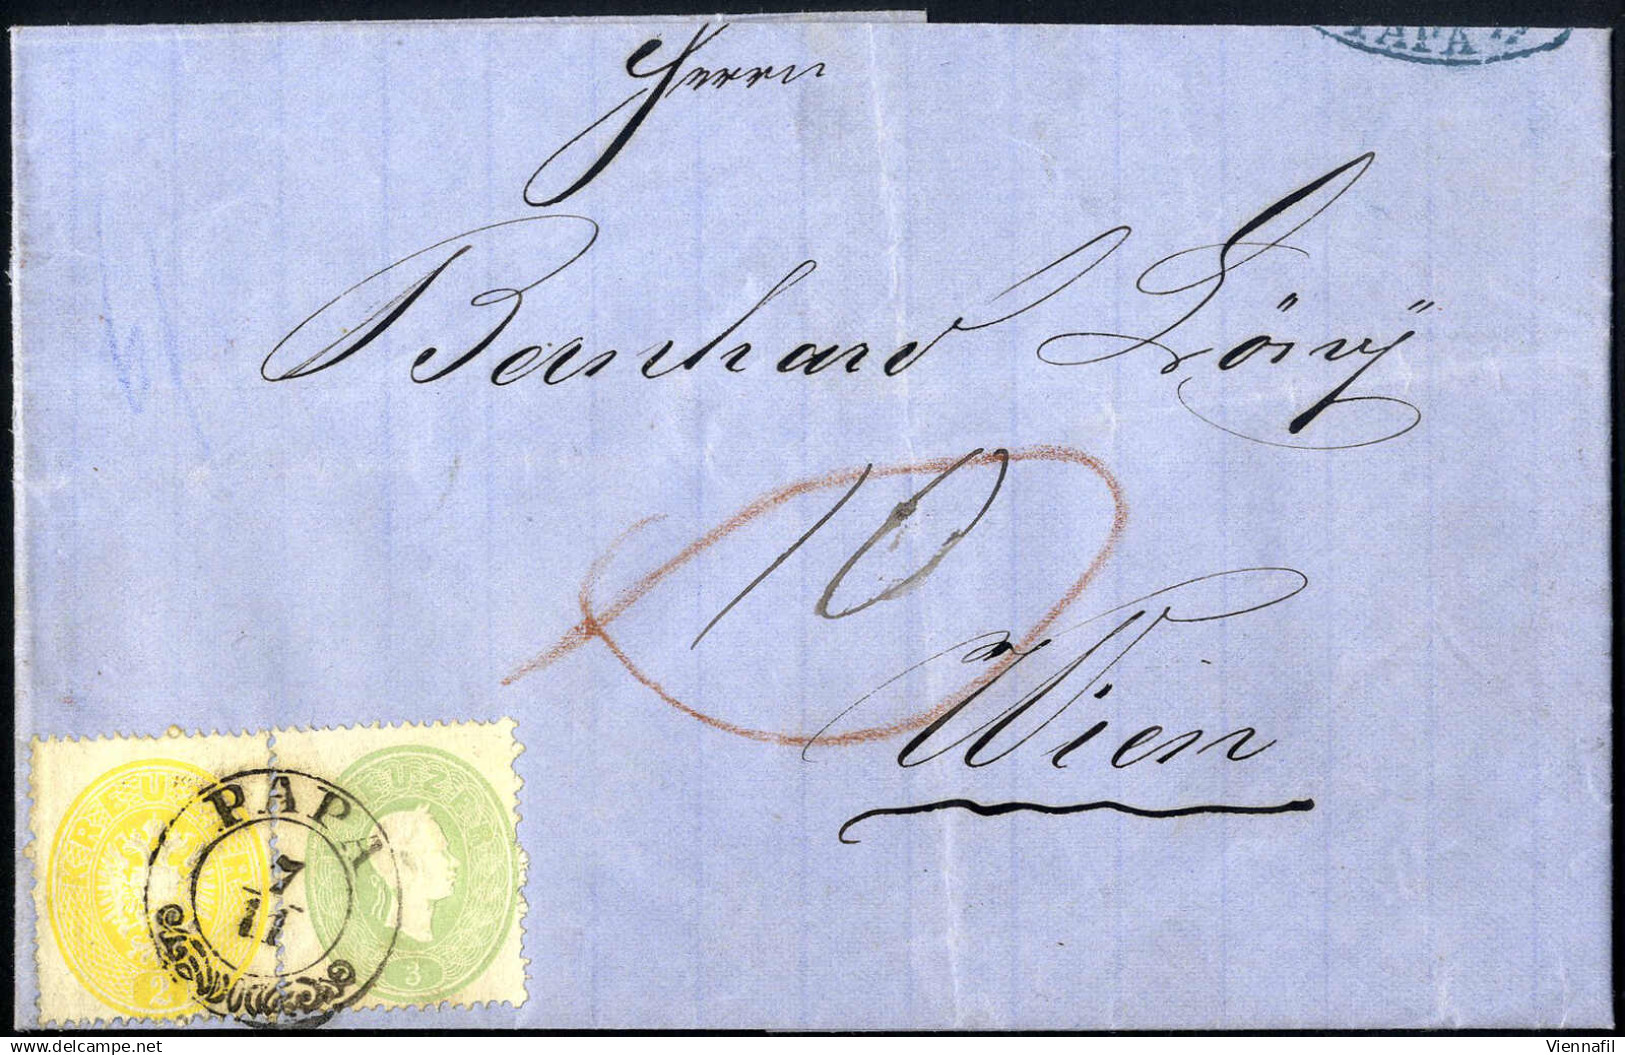 PAPA
Herrn
Bernhard Löwy
10
Wien
KREUZER
2
KREUZER
3
PAPA
7
11
www.delcampe.net
Viennafil